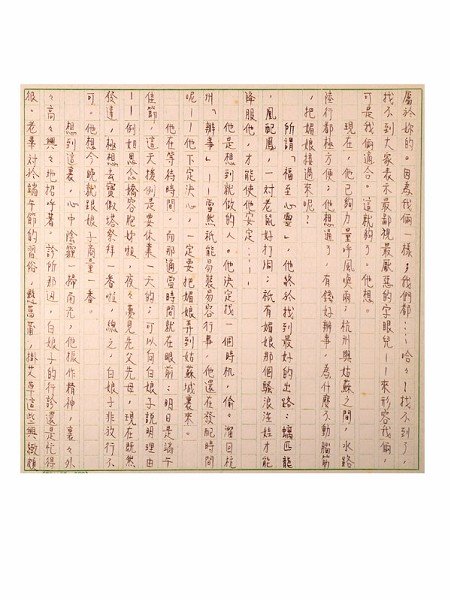 屬於妳的。因為我倆一樣；我們都…哈々！找不到了，
找不到大家表示最鄙視最厭惡的字眼兒！來形容我倆，
可是我倆適合。這就夠了。他想。
現在，他已夠力量呼風喚雨；杭州與姑蘇之間，水路
陸行都極方便；他想通了，有錢好辦事，為什麼不動腦筋
，把媚娘接過來呢？
所謂「福至心靈」，他終於找到最好的出路：螭匹龍
，鳳配鳳，一对老鼠好打洞；祇有媚娘那個騷浪淫娃才能
降服他，才能使他安定……！
他是想到就做的人。他決定找一個時机，偷々溜回杭
州「辦事」！！當然祇能易裝易容行事，他還在發配時間
呢！！他下定決心，一定要把媚娘弄到姑蘇城裏來。
他在等待時間，而那適當時間就在眼前：明日是端午
佳節，這天擒例是要休業一天的；可以向白娘子說明理由
！！倒如思念擒容胞姊啦，夜々夢見先父先母，現在既然
發達，極想去寶俶塔祭拜一番啦，總之，白娘子非放行不
可。他想今晚就跟娘子商量一番。
想到這裏，心中陰霾一掃而光，他振作精神，裏々外
々高々興々地招呼著。診所那邊，白娘子的行診還是忙得
很。老輩对於端午節的習俗，懸菖蒲，掛艾草這些興緻頗